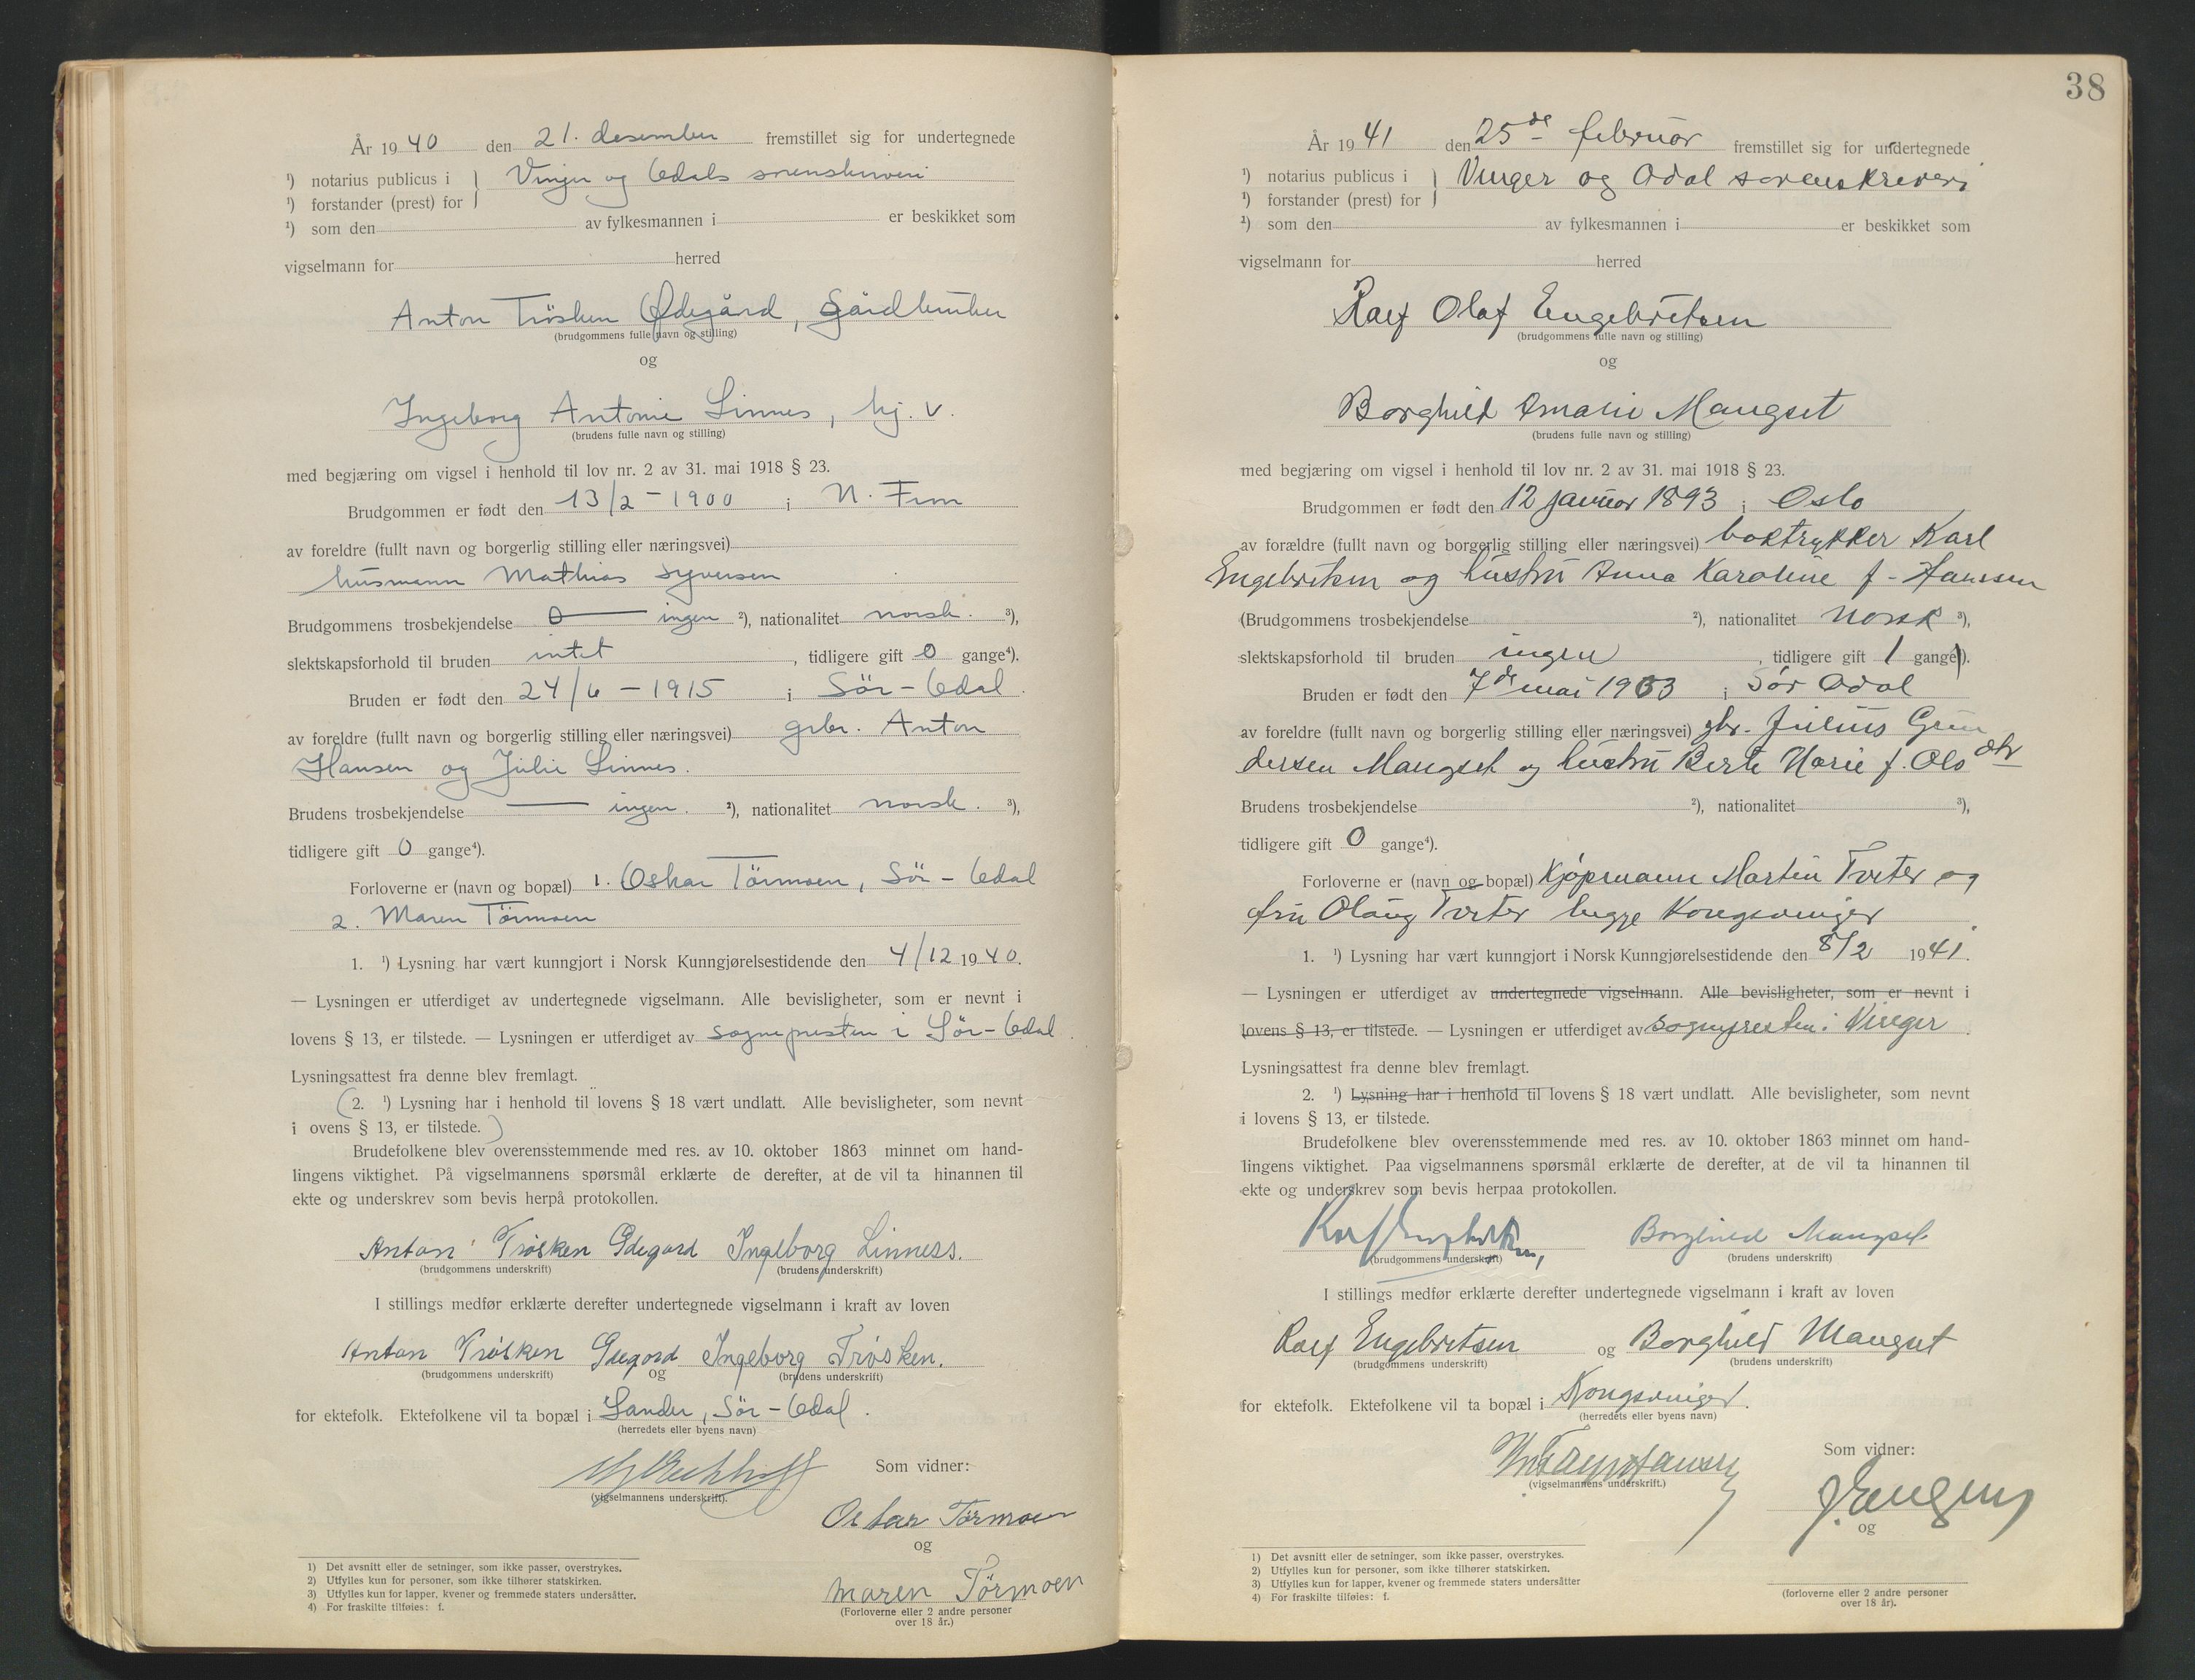 År 1940 den 21. desember fremstillet sig for undertegnede
¹) notarius publicus i
¹) forstander (prest) for
Vinger og Odals sorenskriveri
¹) som den av fylkesmannen i er beskikket som
vigselmann for herred
Anton Trösken Ødegård, gårdbruker
(brudgommens fulle navn og stilling)
og
Ingeborg Antonie Linnes, hj. v.
(brudens fulle navn og stilling)
med begjæring om vigsel i henhold til lov nr. 2 av 31. mai 1918 § 23.
Brudgommen er født den 13/2 - 1900 i N. Finn
av foreldre (fullt navn og borgerlig stilling eller næringsvei)
husmann Mathias Syversen
Brudgommens trosbekjendelse 0 — ingen ²), nationalitet norsk. ³),
slektskapsforhold til bruden intet, tidligere gift 0 gange⁴).
Bruden er født den 24/6 - 1915 i Sör-Odal.
av foreldre (fullt navn og borgerlig stilling eller næringsvei) grbr. Anton
Hansen og Julie Linnes.
Brudens trosbekjendelse — ingen. ²), nationalitet norsk. ³),
tidligere gift 0 gange⁴).
Forloverne er (navn og bopæl) 1. Oskar Törmoen, Sör-Odal
2. Maren Törmoen
1. ¹) Lysning har vært kunngjort i Norsk Kunngjørelsestidende den 4/12 1940.
— Lysningen er utferdiget av undertegnede vigselmann. Alle bevisligheter, som er nevnt i
lovens § 13, er tilstede. — Lysningen er utferdiget av sognepresten i Sör-Odal.
Lysningsattest fra denne blev fremlagt.
(2. ¹) Lysning har i henhold til lovens § 18 vært undlatt. Alle bevisligheter, som nevnt
i ovens § 13, er tilstede.)
Brudefolkene blev overensstemmende med res. av 10. oktober 1863 minnet om hand-
lingens viktighet. På vigselmannens spørsmål erklærte de derefter, at de vil ta hinannen til
ekte og underskrev som bevis herpå protokollen.
Anton Trösken Ödegard Ingeborg Linness.
(brudgommens underskrift) (brudens underskrift)
I stillings medfør erklærte derefter undertegnede vigselmann i kraft av loven
Anton Trösken Ödegord Ingeborg Trösken.
(brudgommens underskrift) og (brudens underskrift)
for ektefolk. Ektefolkene vil ta bopæl i Sander, Sör-Odal.
(herredets eller byens navn)
(vigselmannens underskrift).
Som vidner:
Oskar Törmoen
og
Maren Törmoen
(Forloverne eller 2 andre personer
over 18 år.)
1) Det avsnitt eller de setninger, som ikke passer, overstrykes.
2) Utfylles kun for personer, som ikke tilhører statskirken.
3) Utfylles kun for lapper, kvener og fremmede staters undersåtter.
4) For fraskilte tilføies: f.
38
År 1941 den 25de februar fremstillet sig for undertegnede
¹) notarius publicus i
¹) forstander (prest) for
Vinger og Odal sorenskriveri
¹) som den av fylkesmannen i er beskikket som
vigselmann for herred
Ralf Olaf Engebretsen
(brudgommens fulle navn og stilling)
og
Borghild Amalie Mangset
(brudens fulle navn og stilling)
med begjæring om vigsel i henhold til lov nr. 2 av 31. mai 1918 § 23.
Brudgommen er født den 12 januar 1893 i Oslo
av forældre (fullt navn og borgerlig stilling eller næringsvei) boktrykker Karl
Engebretsen og hustru Anna Karoline f. Hanssen
(Brudgommens trosbekjendelse ²), nationalitet norsk ³),
slektskapsforhold til bruden ingen, tidligere gift 1 gange⁴).
Bruden er født den 7de mai 1903 i Sør Odal
av foreldre (fullt navn og borgerlig stilling eller næringsvei) gbr. Julius Gun
dersen Mangset og hustru Berte Marie f. Ols dtr
Brudens trosbekjendelse ²), nationalitet ³),
tidligere gift 0 gange⁴).
Forloverne er (navn og bopæl) kjøpmann Martin Tveter og
fru Olaug Tveter begge Kongsvinger
1. ¹) Lysning har vært kunngjort i Norsk Kunngjørelsestidende den 8/2 1941.
— Lysningen er utferdiget av undertegnede vigselmann. Alle bevisligheter, som er nevnt i
lovens § 13, er tilstede. — Lysningen er utferdiget av sognepresten i Vinger.
Lysningsattest fra denne blev fremlagt.
2. ¹) Lysning har i henhold til lovens § 18 vært undlatt. Alle bevisligheter, som nevnt
i lovens § 13, er tilstede.
Brudefolkene blev overensstemmende med res. av 10. oktober 1863 minnet om hand-
lingens viktighet. Paa vigselmannens spørsmål erklærte de derefter, at de vil ta hinannen til
ekte og underskrev som bevis herpaa protokollen.
Ralf Engebretsen, Borghild Mangset
(brudgommens underskrift) (brudens underskrift)
I stillings medfør erklærte derefter undertegnede vigselmann i kraft av loven
Ralf Engebretsen og Borghild Mangset
(brudgommens underskrift) (brudens underskrift)
for ektefolk. Ektefolkene vil ta bopæl i Kongsvinger.
(herredets eller byens navn)
(vigselmannens underskrift.)
Som vidner:
og
(forloverne eller 2 andre personer
over 18 år).
1) Det avsnitt eller de setninger, som ikke passer, overstrykes.
2) Utfylles kun for personer, som ikke tilhører statskirken.
3) Utfylles kun for lapper, kvener og fremmede staters undersåtter
4) For fraskilte tilføies: f.